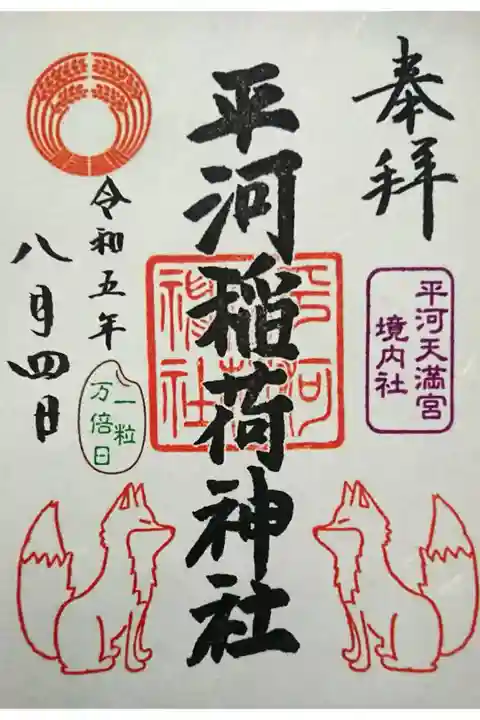 奉拝
平河天満宮
境内社
平河稲荷神社
平河
稲荷
神社
令和五年
八月四日
一粒
万倍日